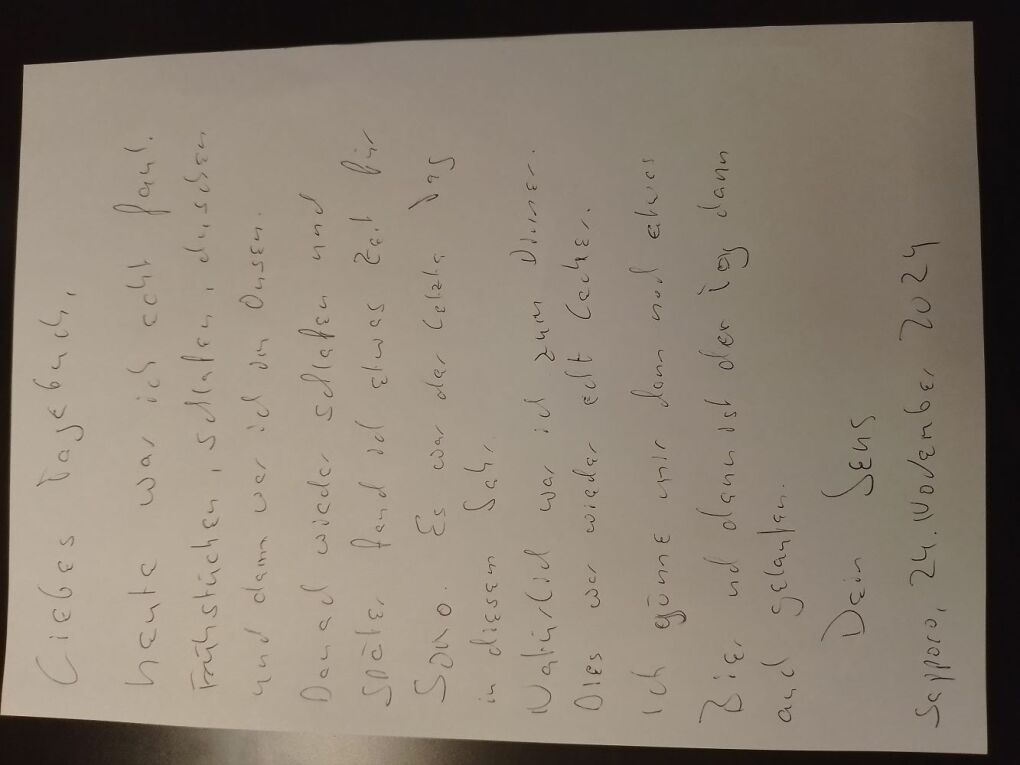 Liebes Tagebuch,
heute war ich echt faul.
Frühstücken, schlafen, duschen
und dann war ich im Onsen.
Danach wieder schlafen und
später fand ich etwas Zeit für
Sumo. Es war der letzte Tag
in diesem Jahr.
Natürlich war ich zum Dinner.
Dies war wieder echt lecker.
Ich gönne mir dann noch etwas
Bier und dann ist der Tag dann
auch gelaufen.
Dein Jens
Sapporo, 24. November 2024